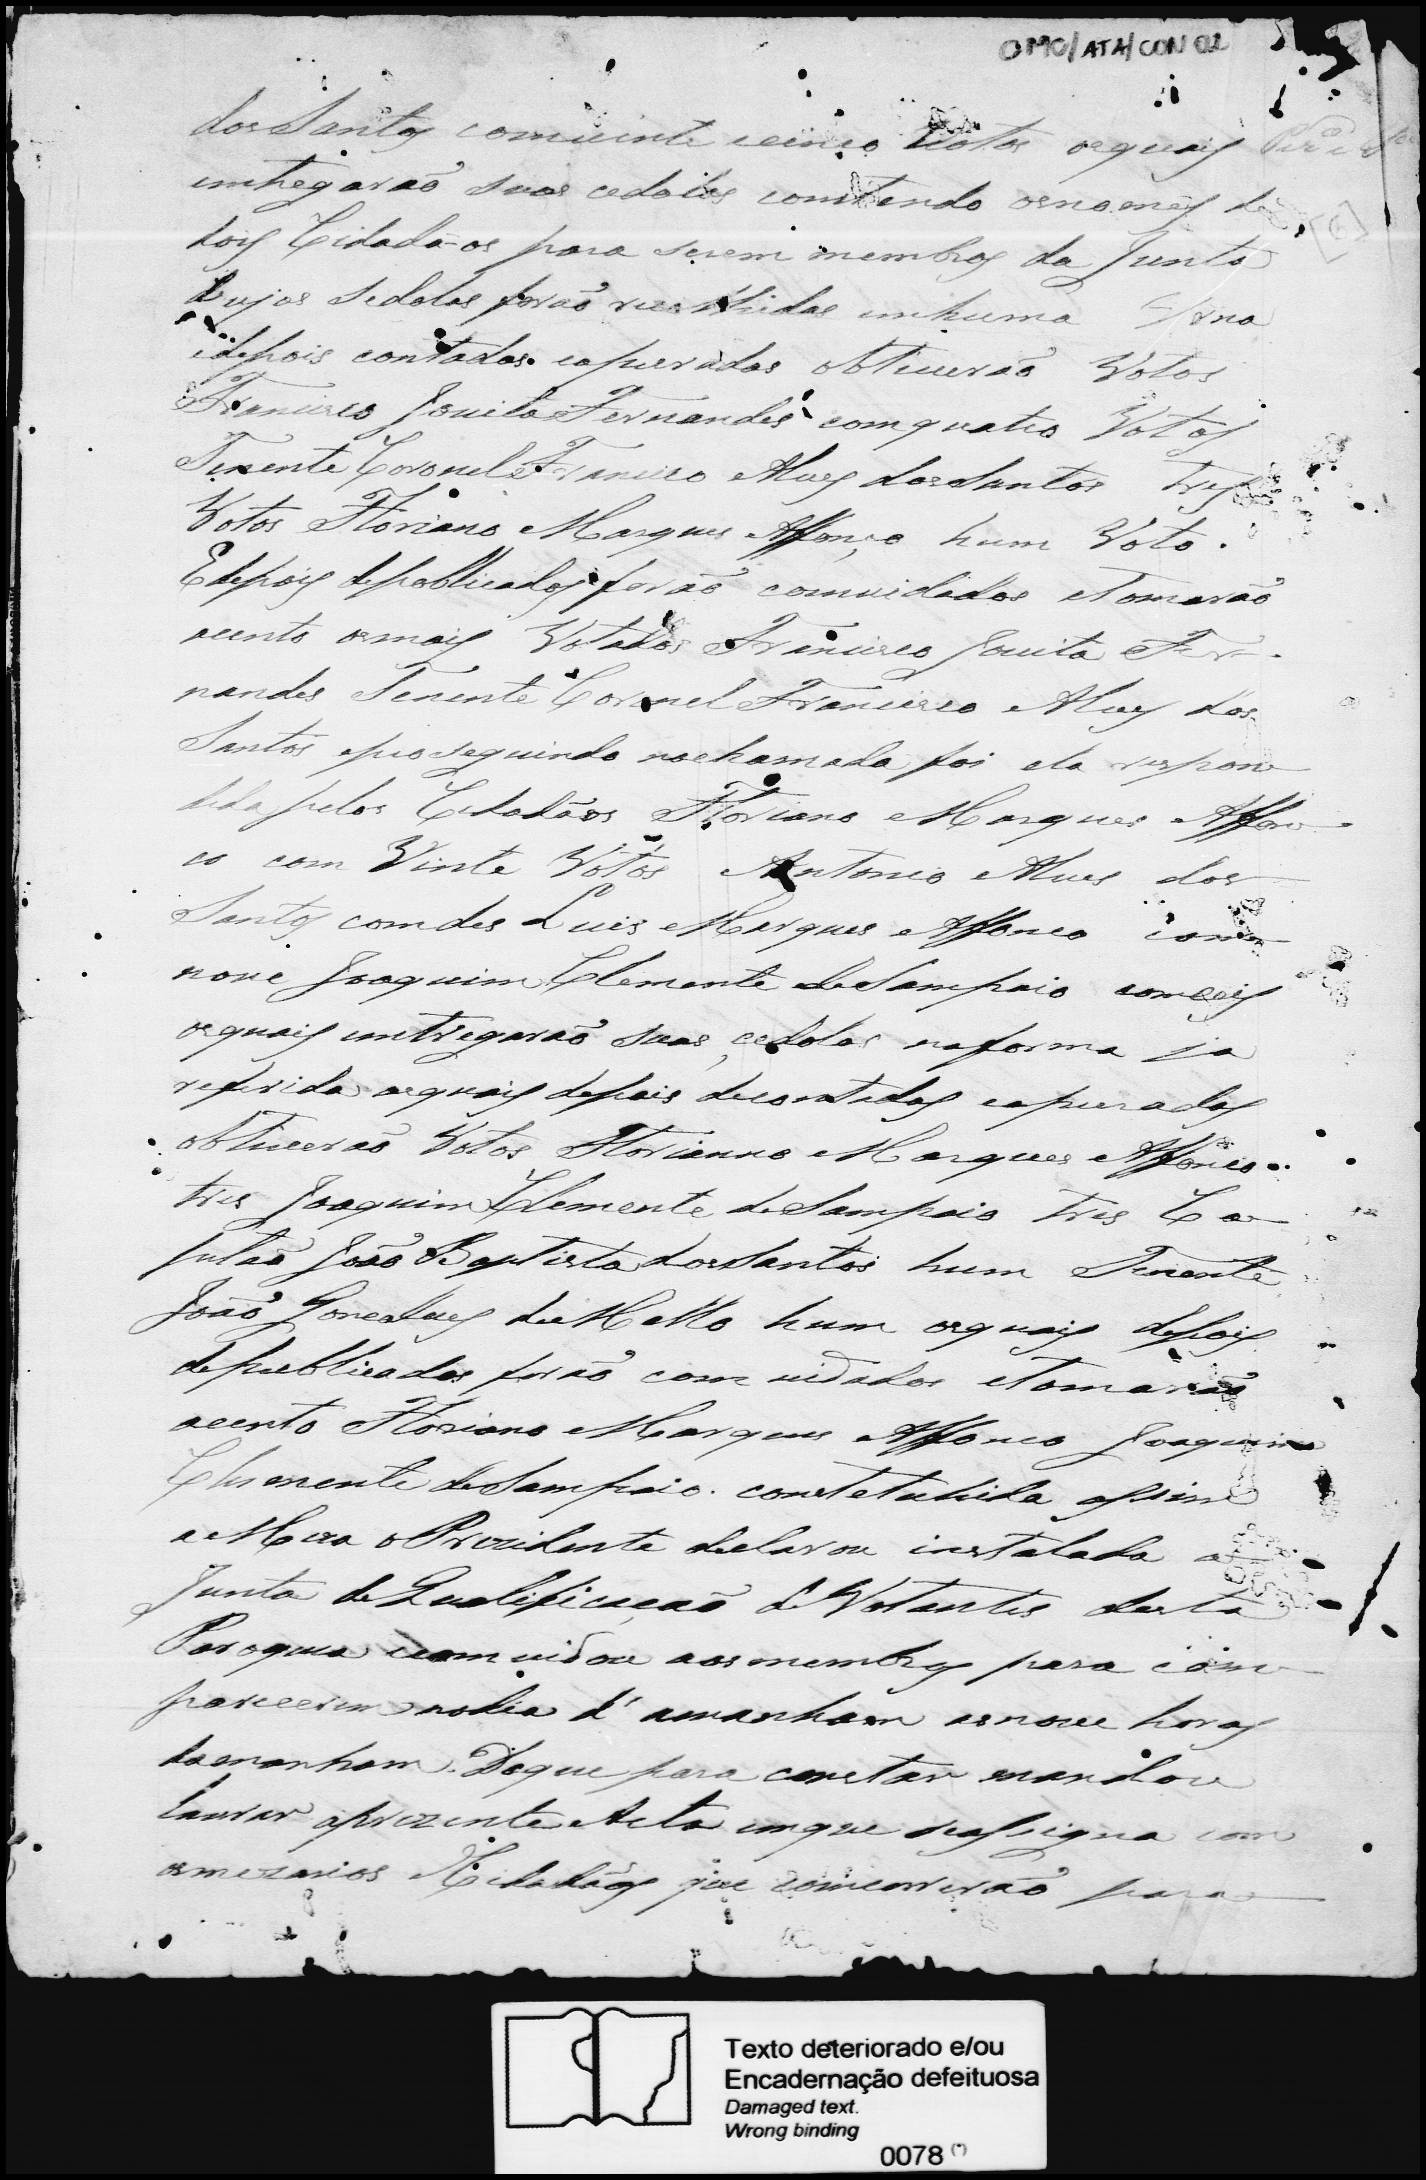 OMO/ATA/CON 02
dos Santos com vinte e cinco Votos os quais
entregarão suas cedolas contendo os nomes de
dois Cidadãos para serem membros da Junta
Cujas sedolas forão recolhidas em huma Urna
e depois contadas e apuradas obtiverão Votos
Francisco Jovita Fernandes com quatro Votos
Tenente Coronel Francisco Alves dos Santos tres
Votos Floriano Marques Affonço hum Voto.
E depois de poblicados forão comvidados e tomarão
acento os mais Votados Francisco Jovita Fer-
nandes Tenente Coronel Francisco Alves dos
Santos e proseguindo na chamada foi ela respon
dida pelos Cidadãos Floriano Marques Affon
co com Vinte Votos Antonio Alves dos
Santos com des Luis Marques Affonco com
nove Joaquim Clemente de Sampaio com seis
os quais entregarão suas cedolas na forma ja
referida as quais depois de contadas e apuradas
obtiverão Votos Florianno Marques Affonco
tres Joaquim Clemente de Sampaio tres Ca
pitão João Baptista dos Santos hum Tenente
João Goncalves de Mello hum os quais depois
de publicados forão comvidados e tomarão
acento Floriano Marques Affonco Joaquim
Clemente de Sampaio. constetuhida assim
a Meza o Prezidente declarou instalada a
Junta de Qualificação de Votantes desta
Paroquia e comvidou aos membros para com
parecerem no dia d'amanham as nove horas
da manham. Do que para constar mandou
lavrar a prezente Acta em que se assigna com
os mezarios e Cidadãos que concorrerão para
Texto deteriorado e/ou
Encadernação defeituosa
Damaged text.
Wrong binding
0078 (*)